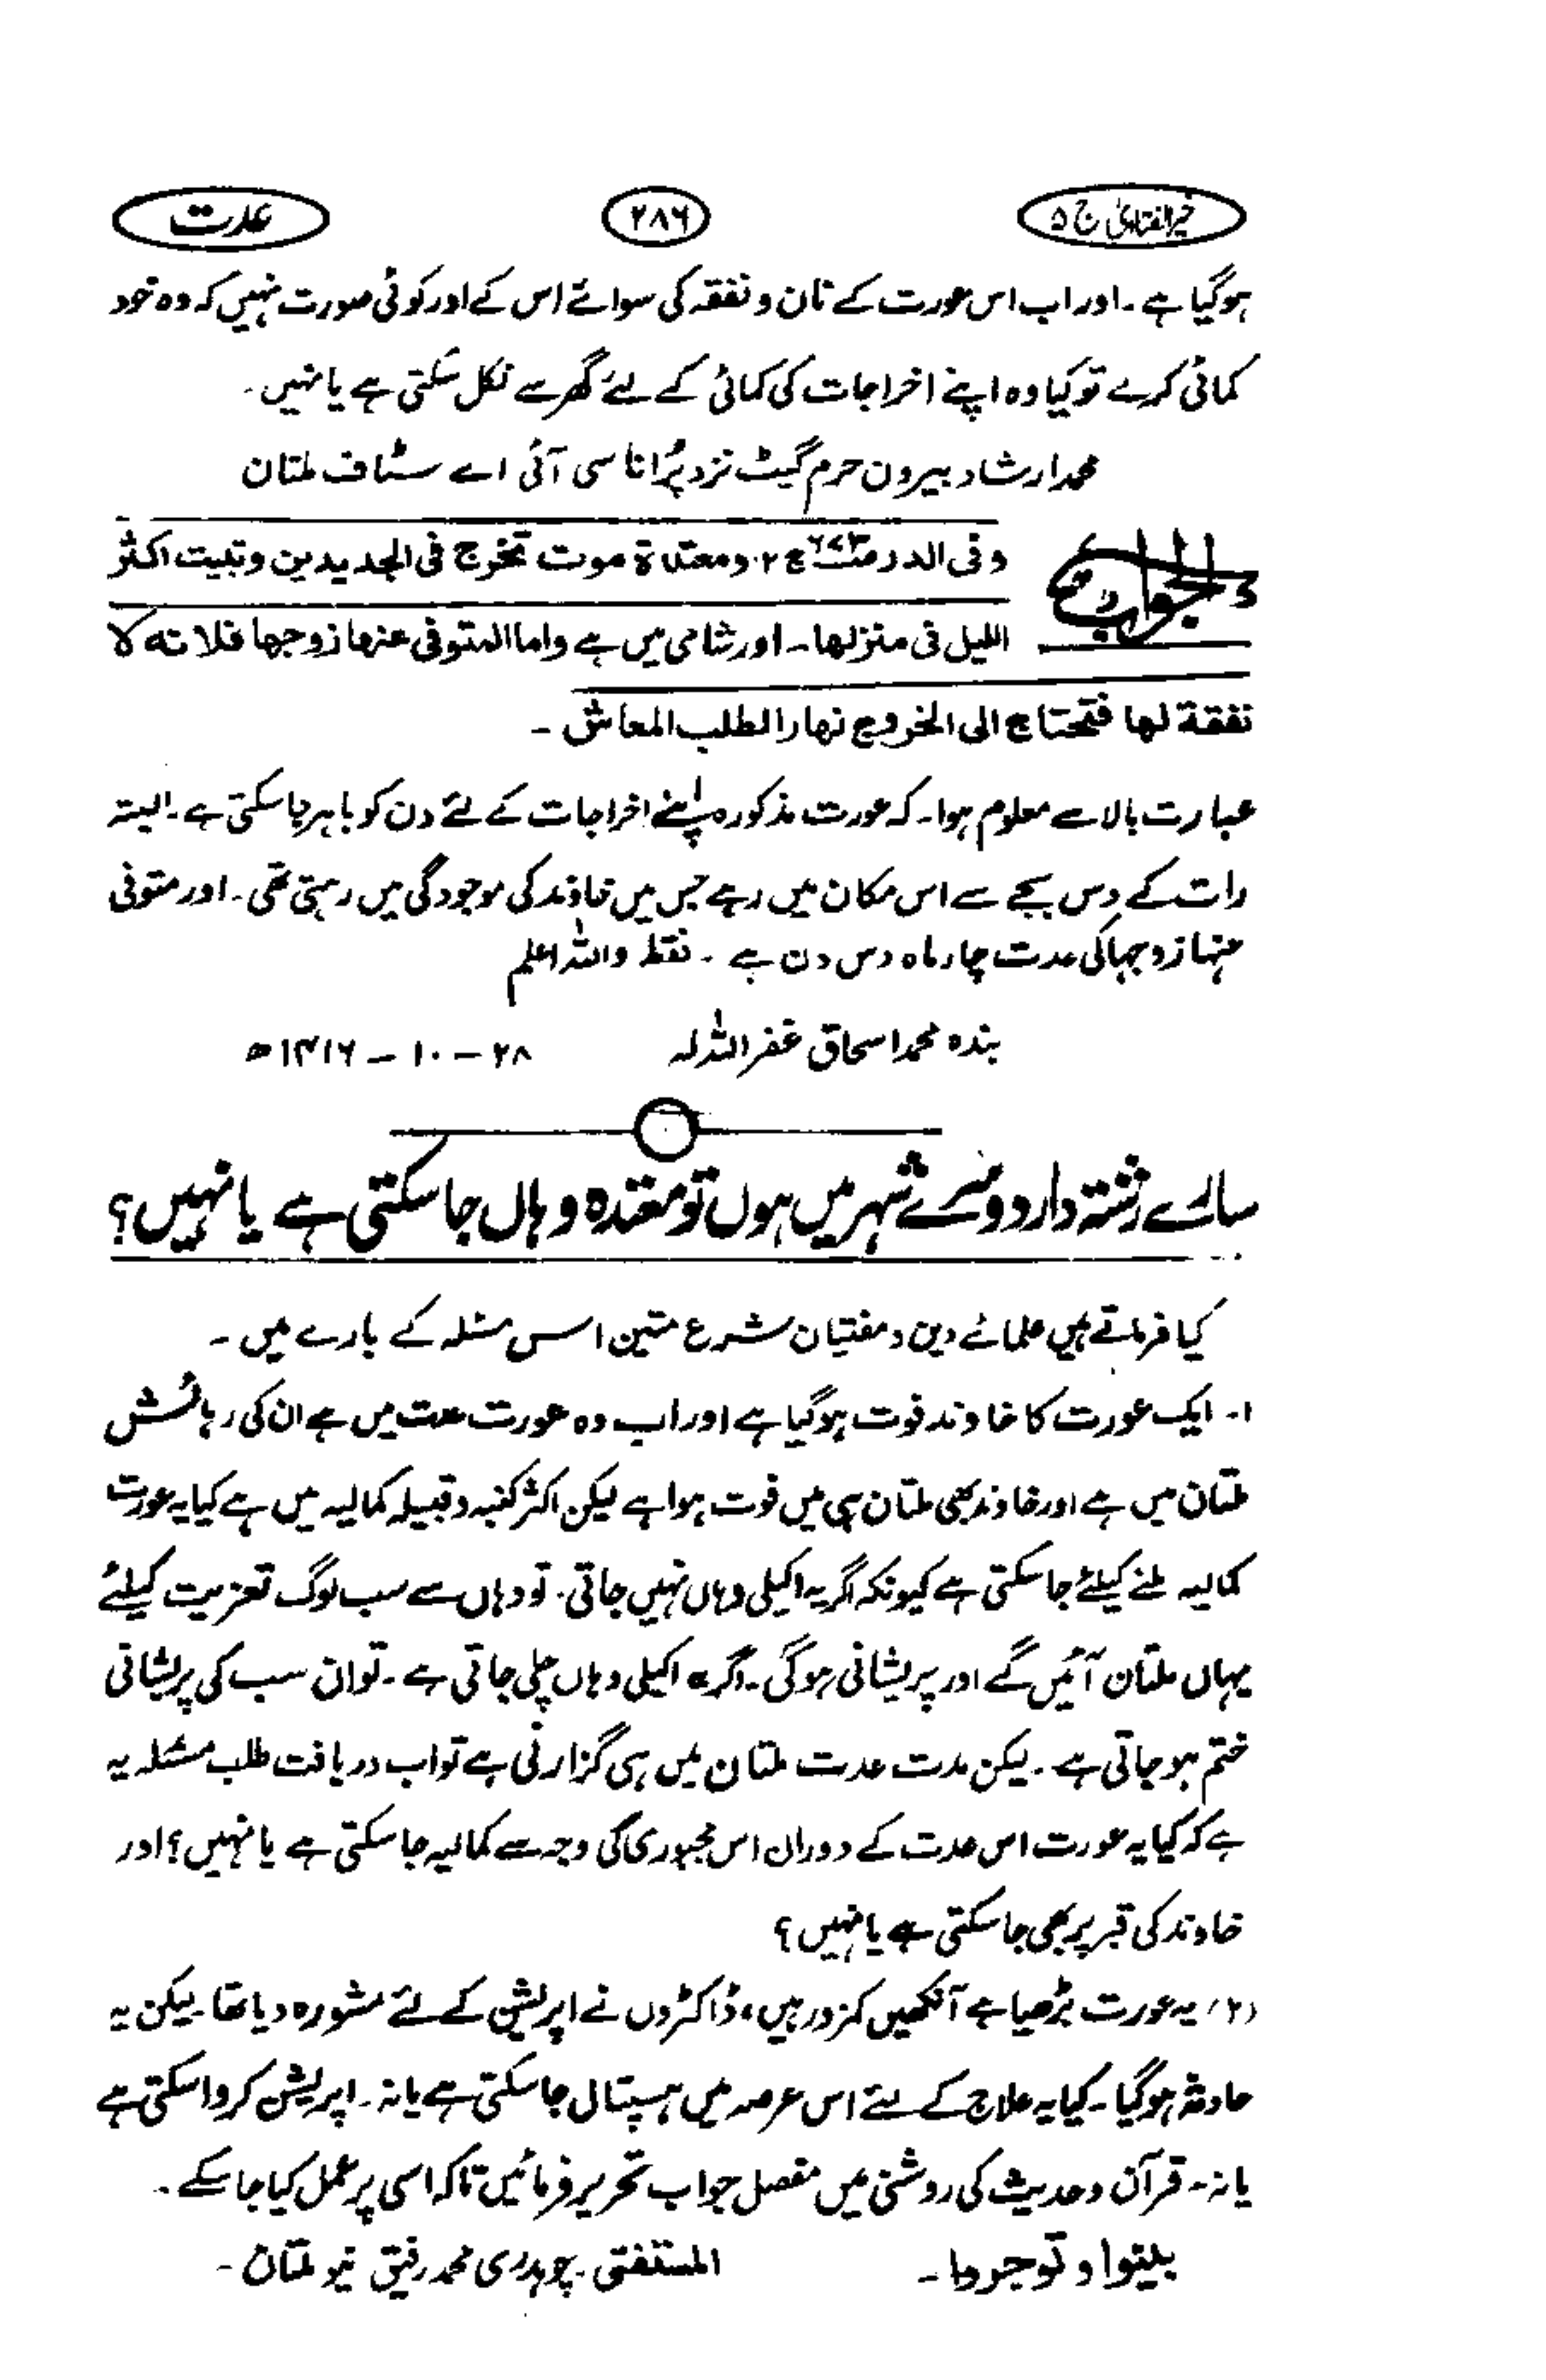 خیر الفتاویٰ ج ۵
۲۸۶
عدت
ہوگیا ہے ۔ اور اب اس عورت کے نان و نفقہ کی سوائے اس کے اور کوئی صورت نہیں کہ وہ خود
کمائی کرے تو کیا وہ اپنے اخراجات کی کمائی کے لئے گھر سے نکل سکتی ہے یا نہیں ۔
محمد ارشاد بیرون حرم گیٹ نزد پُرانا سی آئی اے سٹاف ملتان
الجواب
وفی الدر ج ۲ ۔ ومعتدة موت تخرج فی الجدیدین وتبیت اکثر
اللیل فی منزلها ۔ اور شامی میں ہے واما المتوفی عنها زوجها فلانه لا
نفقة لها فتحتاج الی الخروج نهارا لطلب المعاش ۔
عبارت بالا سے معلوم ہوا ۔ کہ عورت مذکورہ اپنے اخراجات کے لئے دن کو باہر جا سکتی ہے ۔ البتہ
رات کے دس بجے سے اس مکان میں رہے جس میں خاوند کی موجودگی میں رہتی تھی ۔ اور متوفی
عنہا زوجہا کی عدت چار ماہ دس دن ہے ۔ فقط واللہ اعلم
بندہ محمد اسحاق غفر اللہ لہ ۲۸ – ۱۰ – ۱۴۱۶ ھ
سارے رشتہ دار دوسرے شہر میں ہوں تو معتدہ وہاں جا سکتی ہے یا نہیں ؟
کیا فرماتے ہیں علمائے دین و مفتیان شرع متین اس مسئلہ کے بارے میں ۔
۱۔ ایک عورت کا خاوند فوت ہوگیا ہے اور اب وہ عورت عدت میں ہے ان کی رہائش
ملتان میں ہے اور خاوند بھی ملتان ہی میں فوت ہوا ہے لیکن اکثر کنبہ و قبیلہ کمالیہ میں ہے کیا یہ عورت
کمالیہ ملنے کیلئے جا سکتی ہے کیونکہ اگر یہ اکیلی وہاں نہیں جاتی ۔ تو وہاں سے سب لوگ تعزیت کیلئے
یہاں ملتان آئیں گے اور پریشانی ہوگی ۔ اگر یہ اکیلی وہاں چلی جاتی ہے ۔ تو ان سب کی پریشانی
ختم ہو جاتی ہے ۔ لیکن مدت عدت ملتان میں ہی گزارنی ہے تو اب دریافت طلب مسئلہ یہ
ہے کہ کیا یہ عورت اس عدت کے دوران اس مجبوری کی وجہ سے کمالیہ جا سکتی ہے یا نہیں ؟ اور
خاوند کی قبر پر بھی جا سکتی ہے یا نہیں ؟
(۲) یہ عورت بڑھیا ہے آنکھیں کمزور ہیں ، ڈاکٹروں نے اپریشن کے لئے مشورہ دیا تھا ۔ لیکن یہ
حادثہ ہوگیا ۔ کیا یہ علاج کے لئے اس عرصہ میں ہسپتال جا سکتی ہے یا نہ ۔ اپریشن کروا سکتی ہے
یا نہ ۔ قرآن و حدیث کی روشنی میں مفصل جواب تحریر فرمائیں تاکہ اسی پر عمل کیا جا سکے ۔
بینوا و توجروا ۔ المستفتی ۔ چوہدری محمد رفیق نیو ملتان ۔